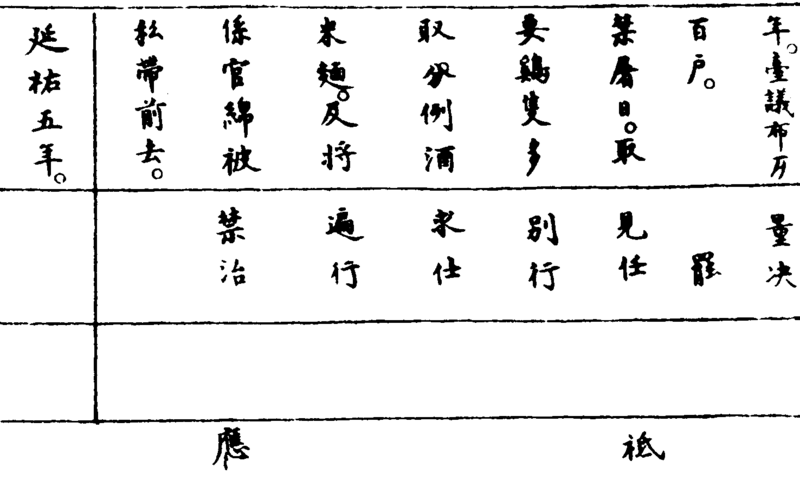 年。臺議布
百户。
禁曆日。取
要鷄隻多
取分例酒
米麵。反將
係官綿被
私帶前去。
延祐五年。
量决
罷
見任
別行
求仕
遍行
禁治
祗
應